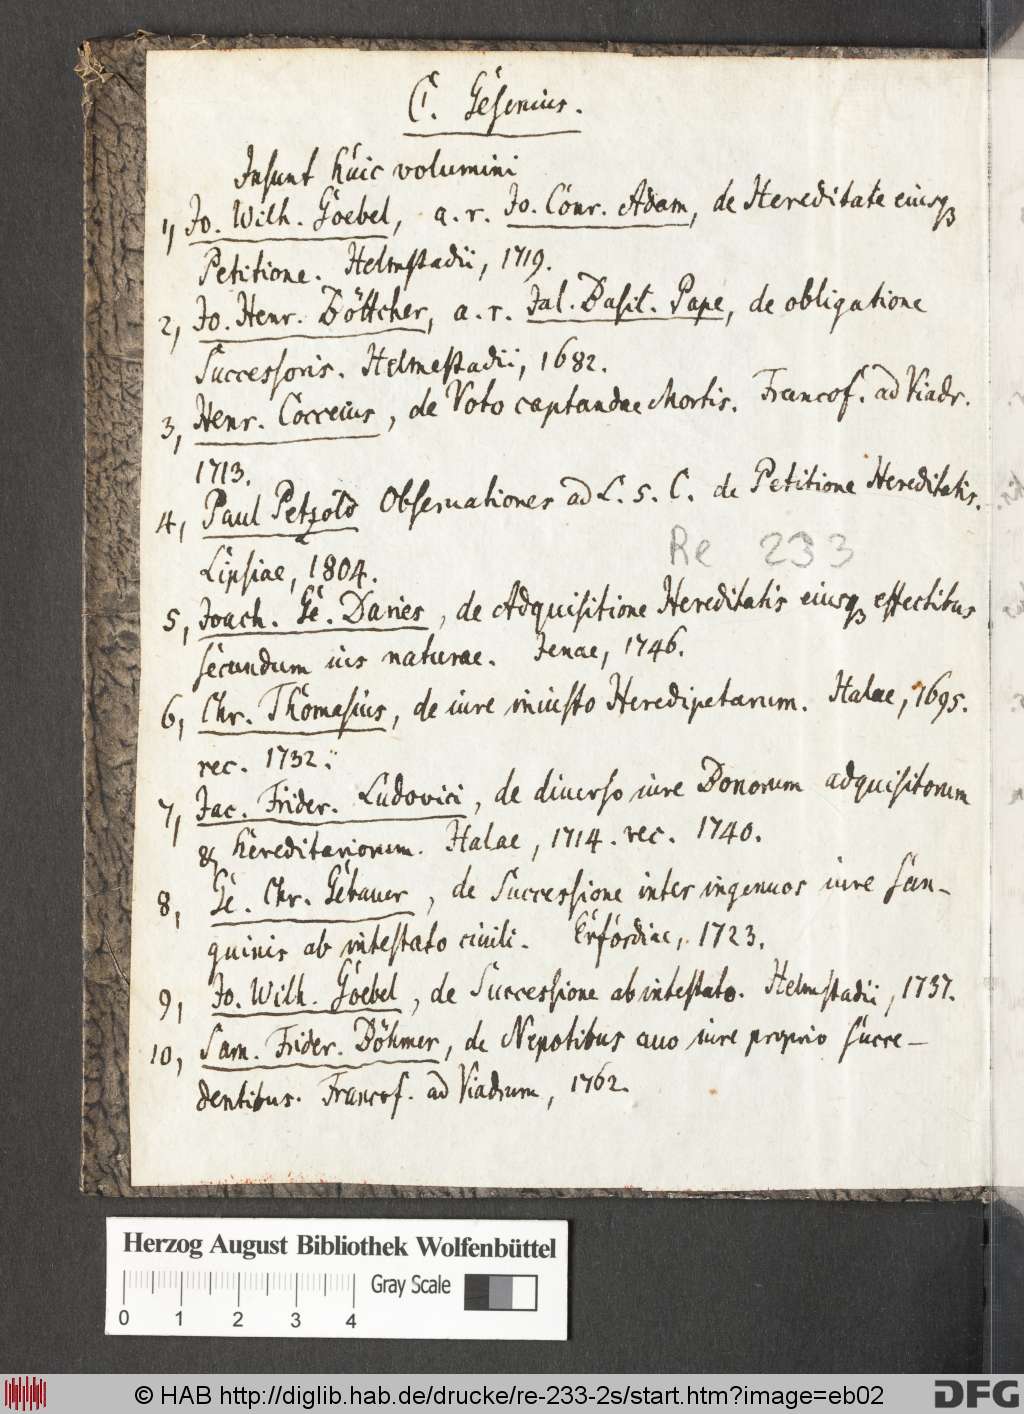 C. Gesenius.
Insunt huic volumini
1, Jo. Wilh. Goebel, a. r. Jo. Conr. Adam, de Hereditate eiusq
Petitione. Helmstadii, 1719.
2, Jo. Henr. Böttcher, a. r. Jal. Basil. Pape, de obligatione
Successoris. Helmestadii, 1682.
3, Henr. Cocceius, de Voto captandae Mortis. Francof. ad Viadr.
1713.
4, Paul Petzold Obseruationes ad L. 5. C. de Petitione Hereditatis.
Re 233
Lipsiae, 1804.
5, Joach. Ge. Daries, de Adquisitione Hereditatis eiusq effectibus
secundum ius naturae. Jenae, 1746.
6, Chr. Thomasius, de iure iniusto Heredipetarum. Halae, 1695.
rec. 1732.
7, Jac. Frider. Ludovici, de diuerso iure Bonorum adquisitorum
& hereditariorum. Halae, 1714. rec. 1740.
8, Ge. Chr. Gebauer, de Successione inter ingenuos iure San-
guinis ab intestato ciuili. Erfordiae, 1723.
9, Jo. Wilh. Goebel, de Successione ab intestato. Helmstadii, 1737.
10, Sam. Frider. Böhmer, de Nepotibus auo iure proprio succe-
dentibus. Francof. ad Viadrum, 1762.
Herzog August Bibliothek Wolfenbüttel
Gray Scale
0 1 2 3 4
© HAB http://diglib.hab.de/drucke/re-233-2s/start.htm?image=eb02
DFG